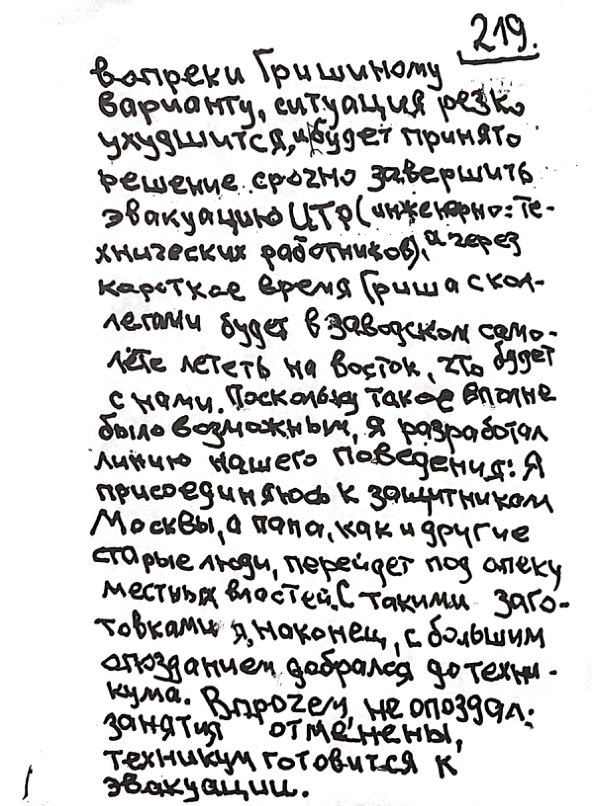 219.
вопреки Гришиному
варианту, ситуация резко
ухудшится, и будет принято
решение срочно завершить
эвакуацию ИТР (инженерно-те-
хнических работников), а через
короткое время Гриша с кол-
легами будет в заводском само-
лёте лететь на восток, что будет
с нами. Поскольку такое вполне
было возможным, я разработал
линию нашего поведения: Я
присоединяюсь к защитникам
Москвы, а папа, как и другие
старые люди, перейдет под опеку
местных властей. С такими заго-
товками я, наконец, с большим
опозданием добрался до техни-
кума. Впрочем, не опоздал:
занятия отменены,
техникум готовится к
эвакуации.